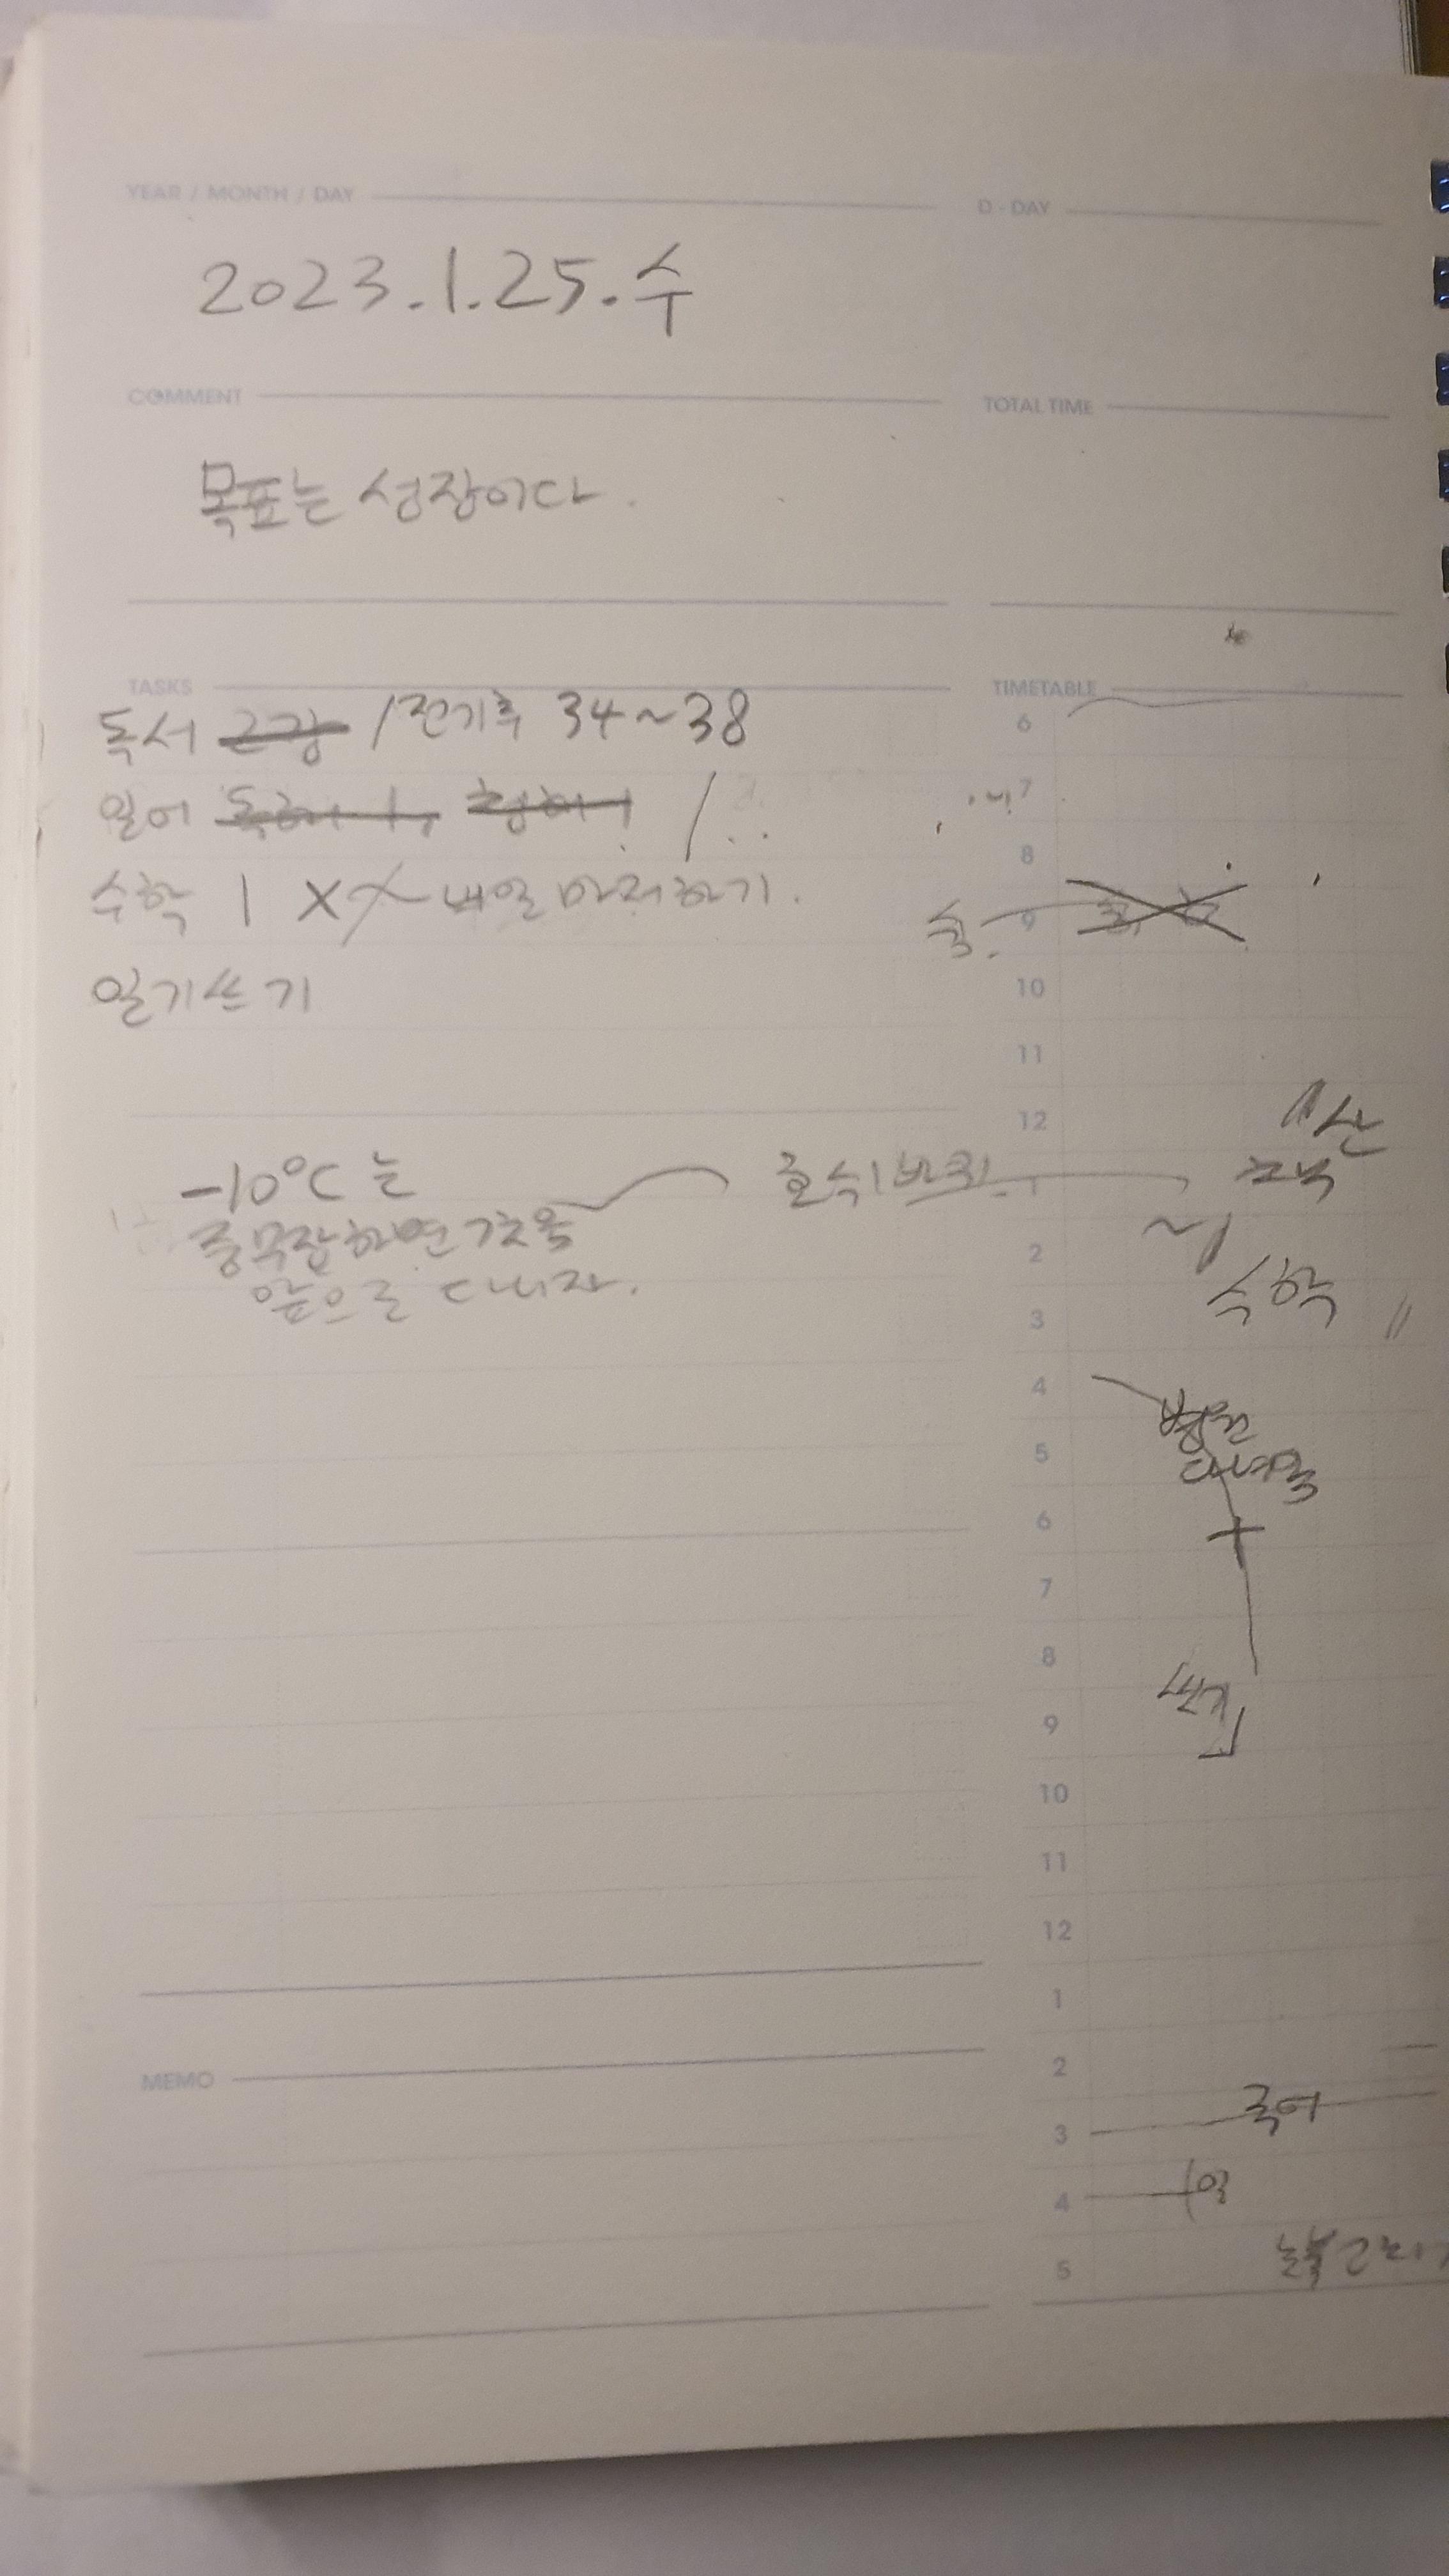 YEAR / MONTH / DAY
D - DAY
2023.1.25.수
COMMENT
TOTAL TIME
목표는 성장이다.
TASKS
TIMETABLE
독서 2강 / 전기추 34~38
일어 독해 1, 청해 1 /
수학 1 X 내일 마저하기.
일기쓰기
-10°C 는
중무장하면
앞으로 다니자.
6
7
8
9
10
11
12
1
2
3
4
5
6
7
8
9
10
11
12
1
2
3
4
5
산
~1
수학
병원
국어
일
MEMO